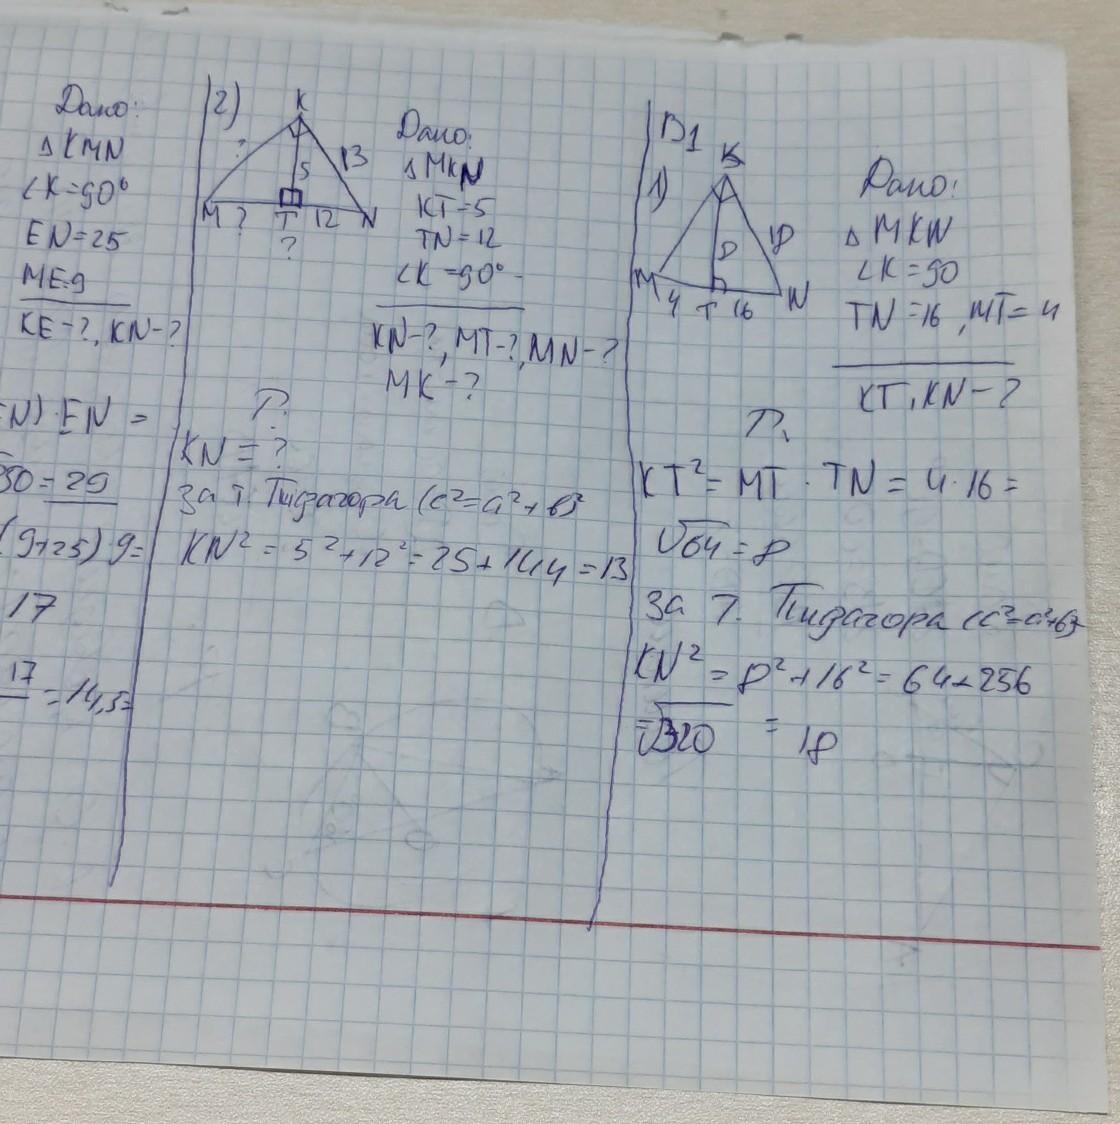 Дано:
△KMN
∠K=90°
EN=25
ME=9
KE-?, KN-?
EN)·EN =
50=29
(9+25)9=
17
17
=14,5=
2)
K
?
5
13
M ? T 12 N
?
Дано:
△MKN
KT=5
TN=12
∠K=90°
KN-?, MT-?, MN-?
MK-?
Р.
KN=?
За т. Пидагора (c²=a²+b²
KN²=5²+12²=25+144=13
В1
1)
K
8
18
M 4 T 16 N
Дано:
△MKN
∠K=90
TN=16, MT=4
KT, KN-?
Р.
KT²=MT·TN=4·16=
√64=8
За т. Пидагора (c²=a²+b²
KN²=8²+16²=64+256
=√320 = 18